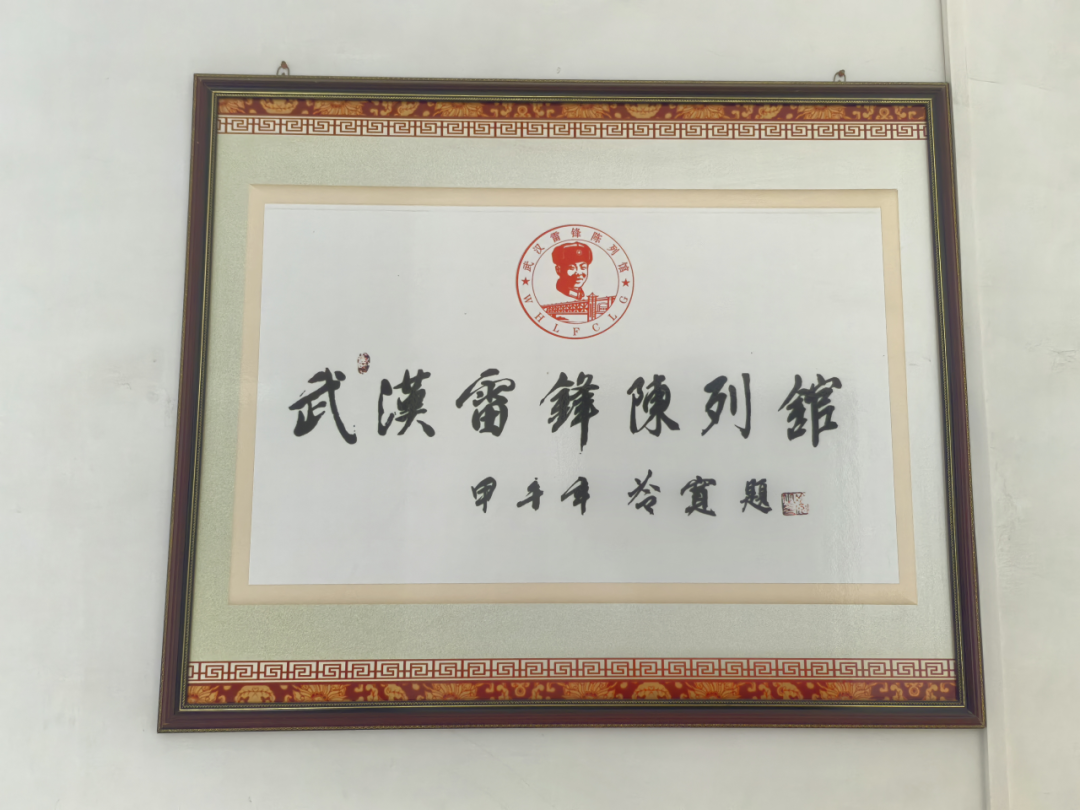 武汉雷锋陈列馆
WHLFCLG
武漢雷鋒陳列館
甲午年 冷寛題